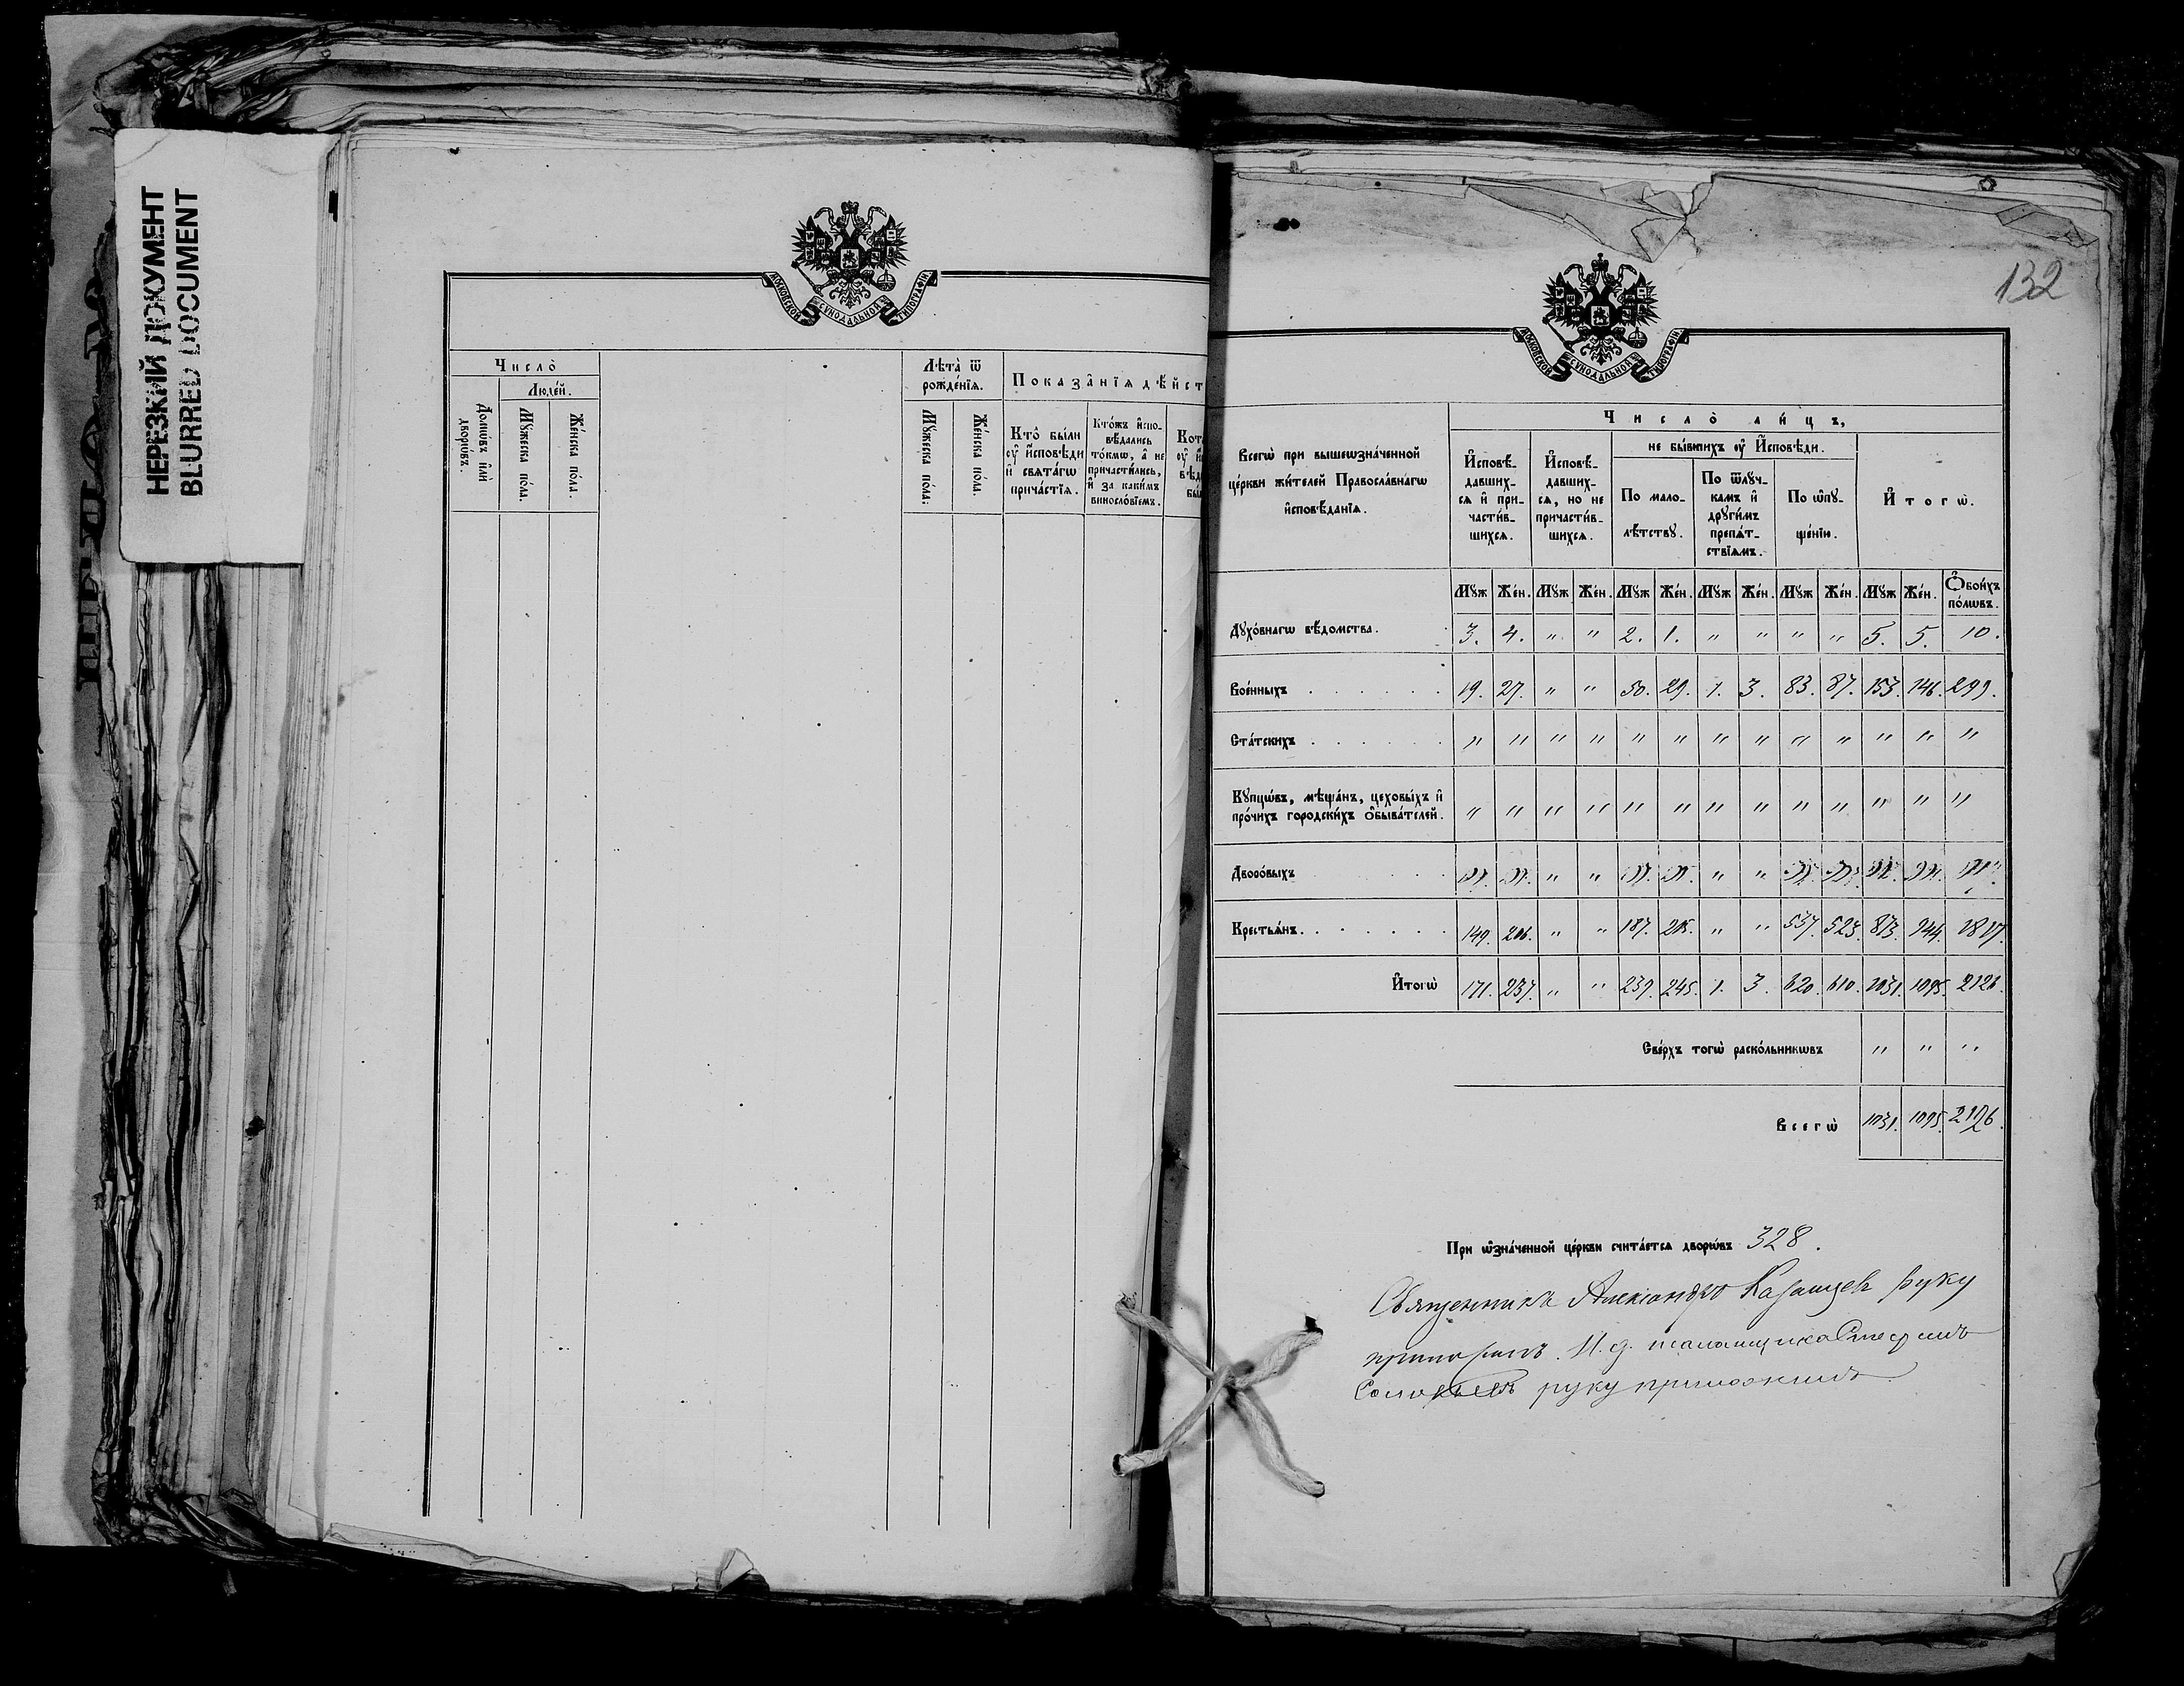 НЕРЕЗКИЙ ДОКУМЕНТ
BLURRED DOCUMENT
МОСКОВСКОЙ СѴНОДАЛЬНОЙ ТИПОГРАФІИ
Число̀
Люде́й.
Домѡ́въ и҆лѝ дворѡ́въ.
Мꙋ́жеска по́ла.
Же́нска по́ла.
Лѣта̀ ѿ рожде́нїѧ.
Мꙋ́жеска по́ла.
Же́нска по́ла.
Показа̂нїѧ дѣ́йст
Кто̀ бы́ли ᲂу҆ И҆сповѣ́ди и҆ свѧта́гѡ прича́стїѧ.
Кто́жъ и҆спо-
вѣ́дались
то́кмѡ, а҆ не
причасти́лись,
и҆ за каки́мъ
винослові́емъ.
132
МОСКОВСКОЙ СѴНОДАЛЬНОЙ ТИПОГРАФІИ
Всегѡ̀ при вышеѡзна́ченной
це́ркви жи́телей Правосла́внагѡ
и҆сповѣ́данїѧ.
Число̀ ли́цъ,
И҆сповѣ́-
давших-
сѧ и҆ при-
части́в-
шихсѧ.
И҆сповѣ́-
давших-
сѧ, но не
причасти́в-
шихсѧ.
не бы́вшихъ ᲂу҆ И҆сповѣ́ди.
По мало-
лѣ́тствꙋ.
По ѿлꙋ́ч-
камъ и҆
дрꙋги́мъ
препѧ́т-
ствїѧмъ.
По ѡ҆пꙋ-
ще́нїю.
И҆тогѡ̀.
Мꙋж Же́н. Мꙋж Же́н. Мꙋж Же́н. Мꙋж Же́н. Мꙋж Же́н. Мꙋж Же́н. Ѻ҆бои́хъ по́лѡвъ.
Дꙋхо́внагѡ вѣ́домства. 3. 4. " " 2. 1. " " " " 5. 5. 10.
Вое́нныхъ 19. 27. " " 50. 29. 1. 3. 83. 87. 153. 146. 299.
Ста́тскихъ " " " " " " " " " " " " "
Кꙋпцѡ́въ, мѣща́нъ, цеховы́хъ и҆
про́чихъ городски́хъ ѻ҆быва́телей. " " " " " " " " " " " " "
Дворо́выхъ " " " "
Крестья́нъ 149. 206. " " 187. 215. " " 537. 523. 873. 944. 1817.
И҆тогѡ̀ 171. 237. " " 239. 245. 1. 3. 620. 610. 1031. 1095. 2126.
Све́рхъ тогѡ̀ раско́льникѡвъ " " "
Всегѡ̀ 1031. 1095. 2126.
При ѡ҆зна́ченной це́ркви счита́етсѧ дворѡ́въ 328.
Священникъ Александръ Казанцев руку
приложилъ. И. д. псаломщика Стефанъ
Соловьевъ руку приложилъ